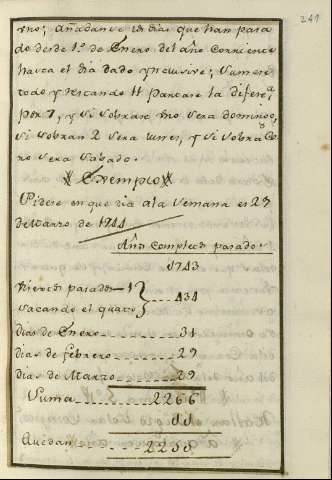 241
uno; Añadanse los dias que han pasa
do desde 1.º de Enero del año corriente
hasta el dia dado ynclusive; Sumese
todo y restando 11 partase la difere.ª
por 7, y si sobrase uno sera domingo,
si sobran 2 sera lunes, y si sobra Ce
ro sera Sabado.
Exemplo
Pidese en que dia de la Semana es 29
de Marzo de 1744
Años Completos pasados.
1743
Viciestos pasados
sacando el quarto 434
dias de Enero 31
dias de febrero 29
dias de Marzo 29
Suma 2266
11
Quedan 2255